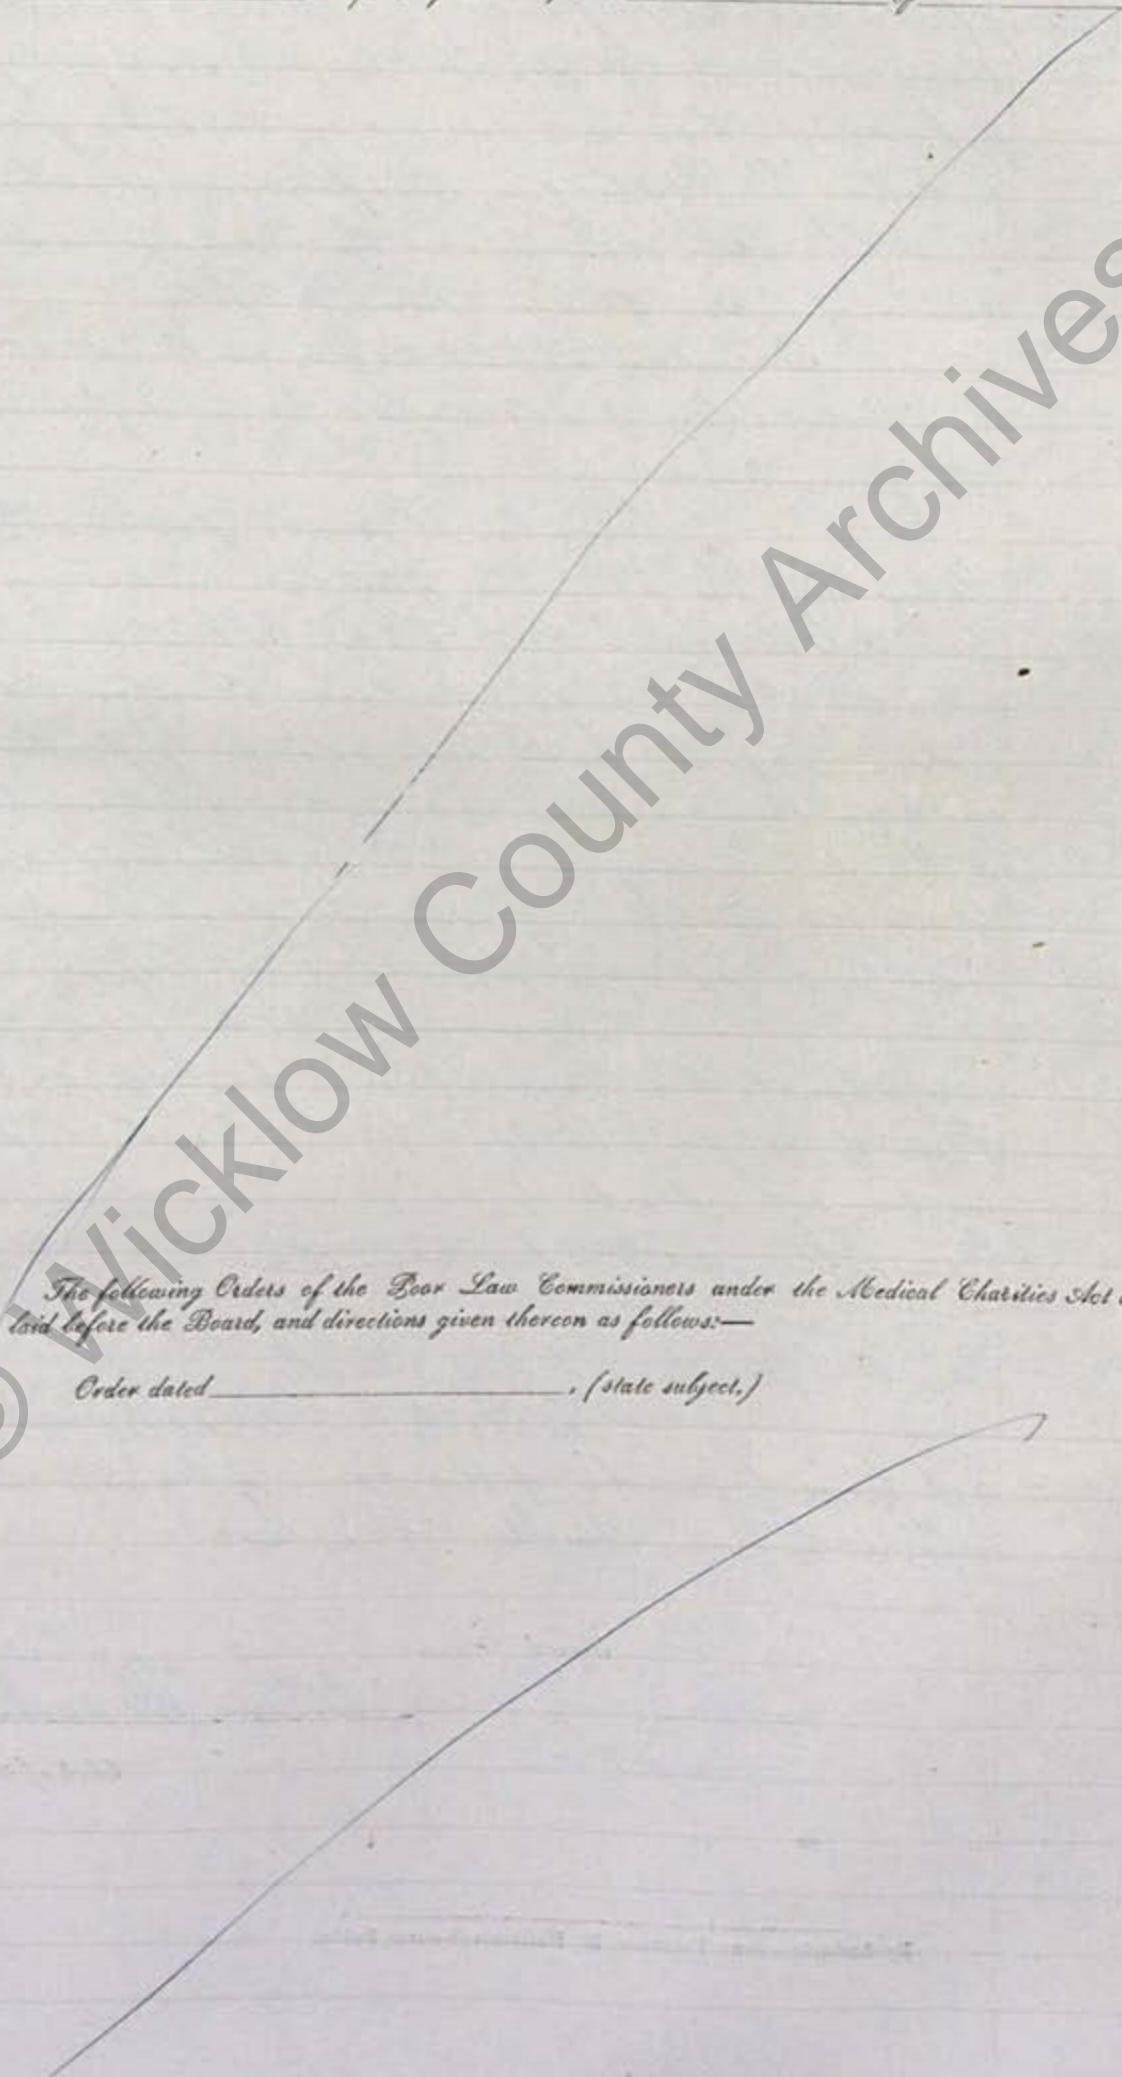 © Wicklow County Archives
The following Orders of the Poor Law Commissioners under the Medical Charities Act
laid before the Board, and directions given thereon as follows:—
Order dated , (state subject.)